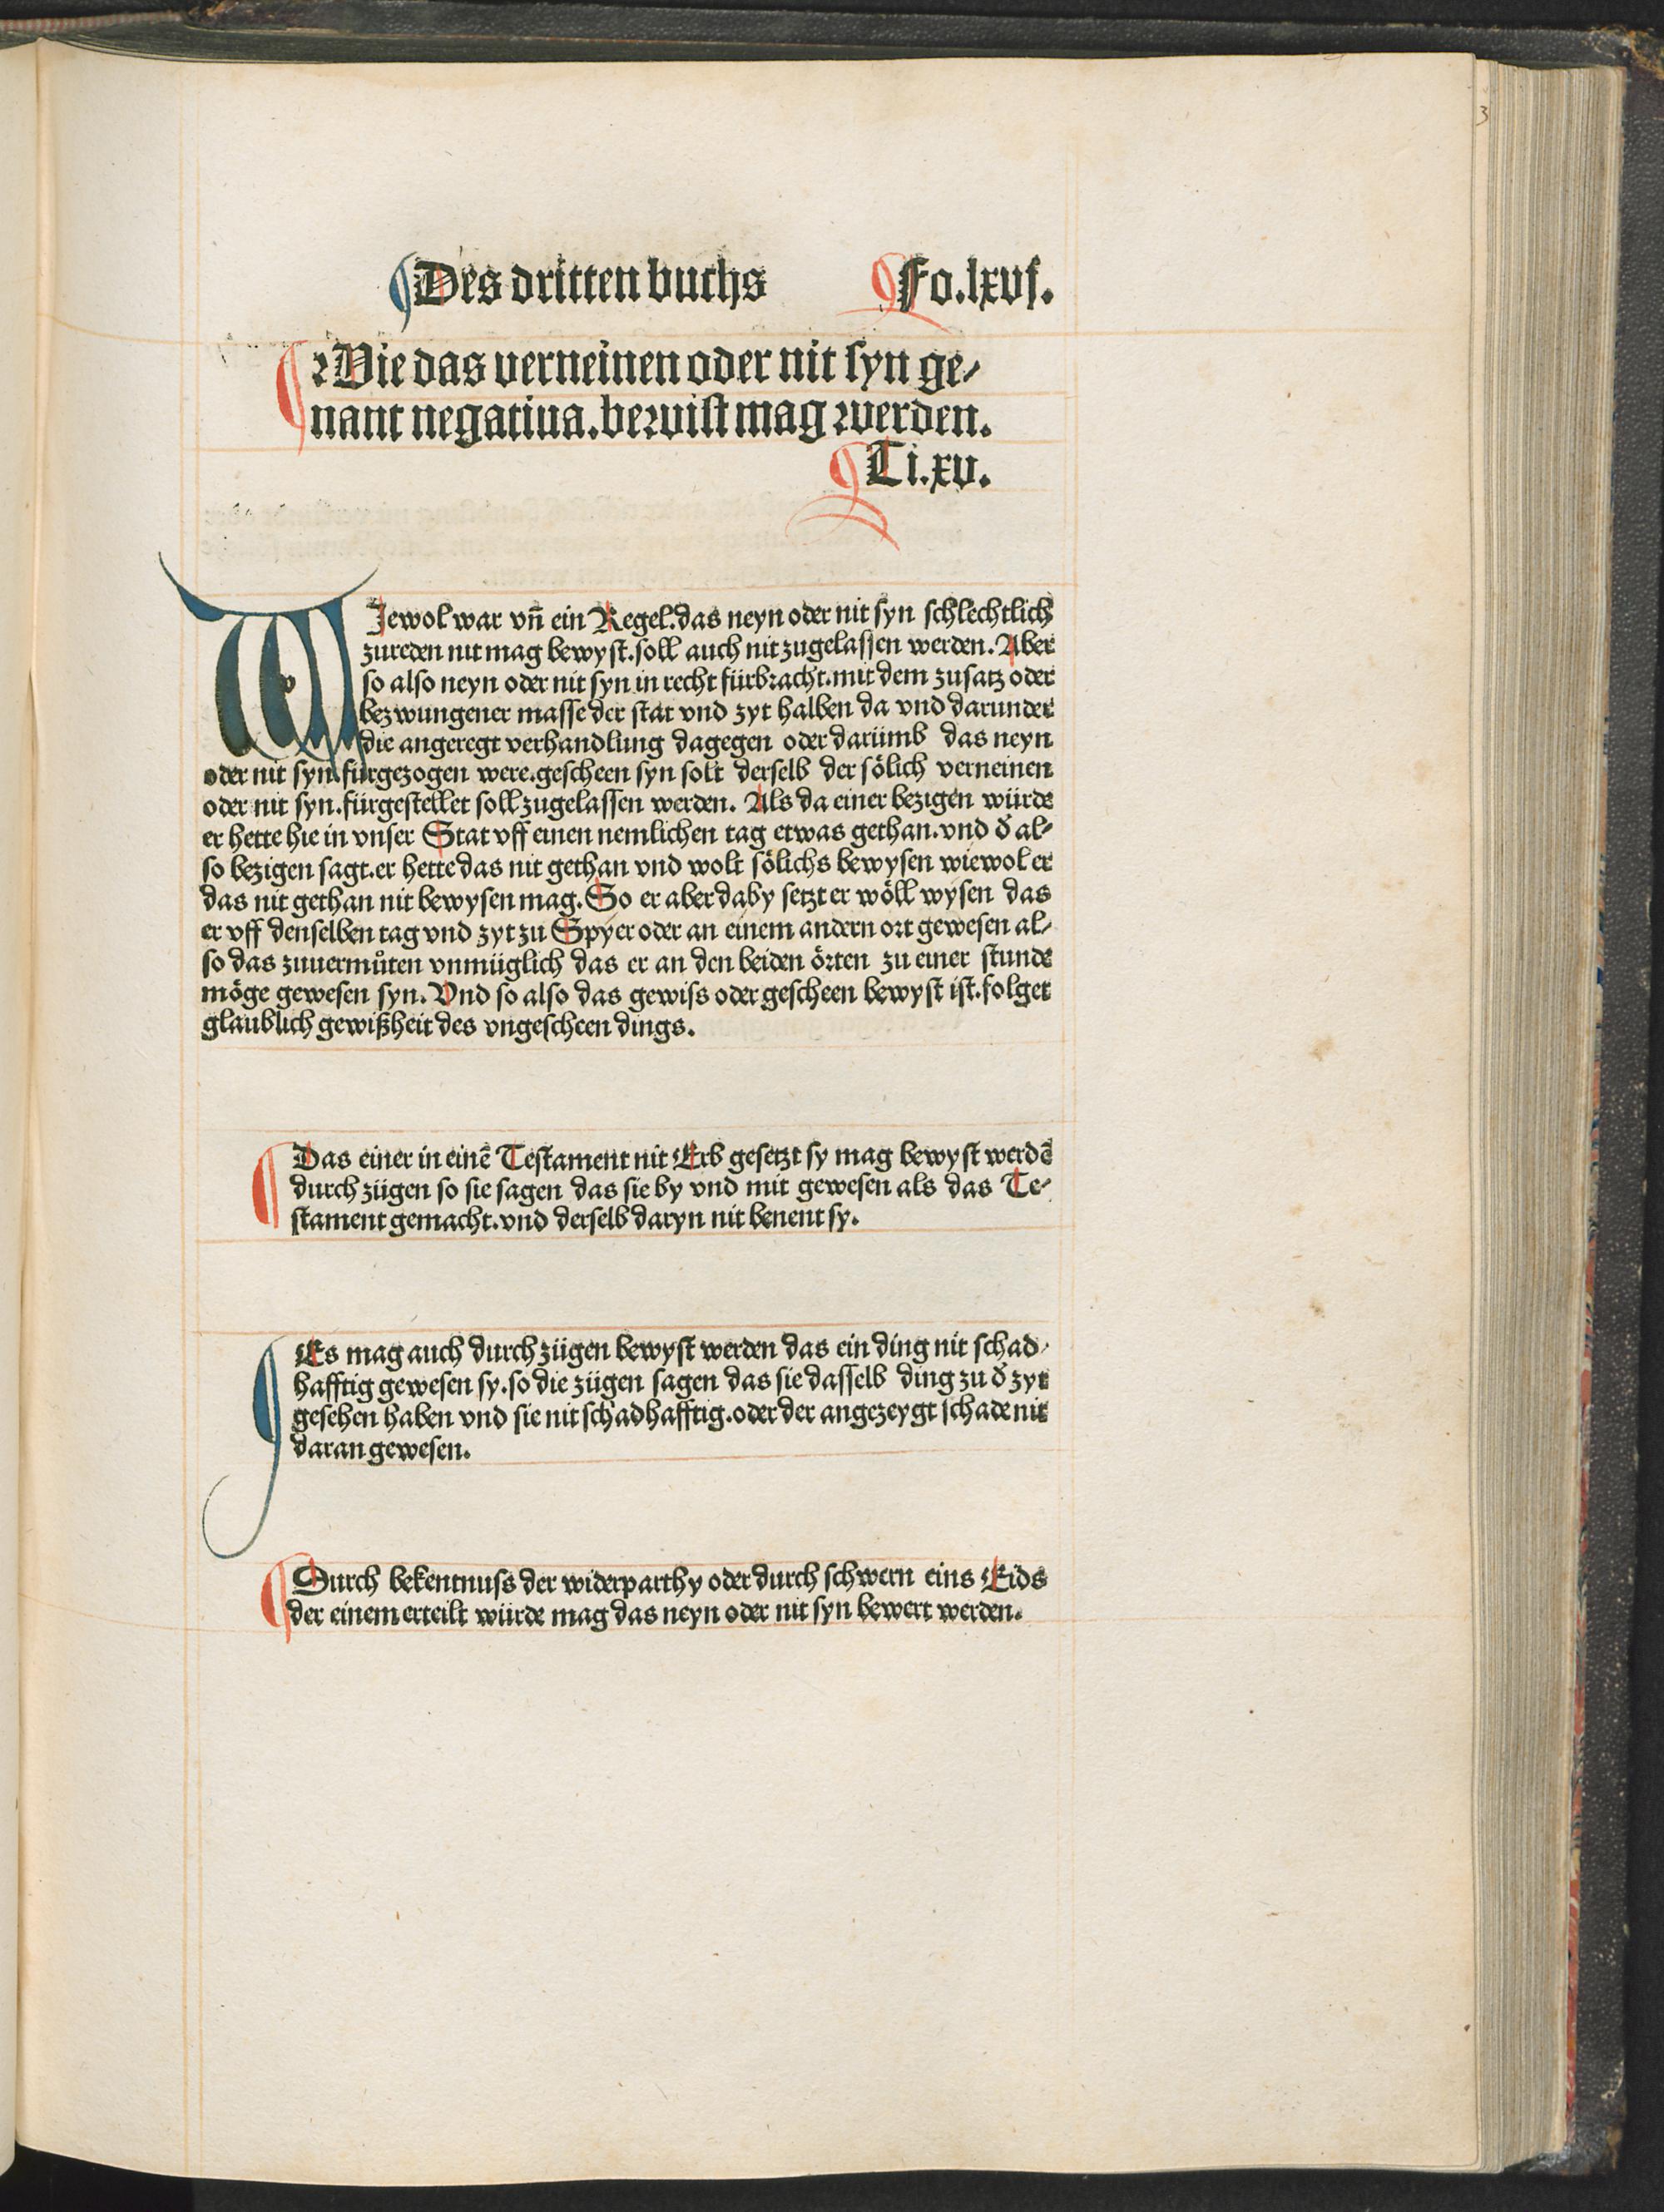 Des dritten buchs Fo.lxvj.
Wie das verneinen oder nit syn ge-
nant negatiua.bewist mag werden.
Ti.xv.
WJewol war vn̄ ein Regel.das neyn oder nit syn schlechtlich
zureden nit mag bewyst.soll auch nit zugelassen werden. Aber
so also neyn oder nit syn in recht fürbracht.mit dem zusatz oder
bezwungener masse der stat vnd zyt halben da vnd darunder
die angeregt verhandlung dagegen oder darümb das neyn
oder nit syn.fürgezogen were.gescheen syn solt derselb der sölich verneinen
oder nit syn.fürgestellet soll zugelassen werden. Als da einer bezigen würde
er hette hie in vnser Stat vff einen nemlichen tag etwas gethan.vnd d̛ al-
so bezigen sagt.er hette das nit gethan vnd wolt sölichs bewysen wiewol er
das nit gethan nit bewysen mag. So er aber daby setzt er wöll wysen das
er vff denselben tag vnd zyt zu Spyer oder an einem andern ort gewesen al-
so das zuuermůten vnmüglich das er an den beiden örten zu einer stunde
möge gewesen syn. Vnd so also das gewiss oder gescheen bewyst ist.folget
glaublich gewißheit des vngescheen dings.
Das einer in einē Testament nit Erb gesetzt sy mag bewyst werdē
durch zügen so sie sagen das sie by vnd mit gewesen als das Te-
stament gemacht.vnd derselb daryn nit benent sy.
Es mag auch durch zügen bewyst werden das ein ding nit schad-
hafftig gewesen sy.so die zügen sagen das sie dasselb ding zu d̛ zyt
gesehen haben vnd sie nit schadhafftig.oder der angezeygt schade nit
daran gewesen.
Durch bekentnuss der widerparthy oder durch schwern eins Eids
der einem erteilt würde mag das neyn oder nit syn bewert werden.
3